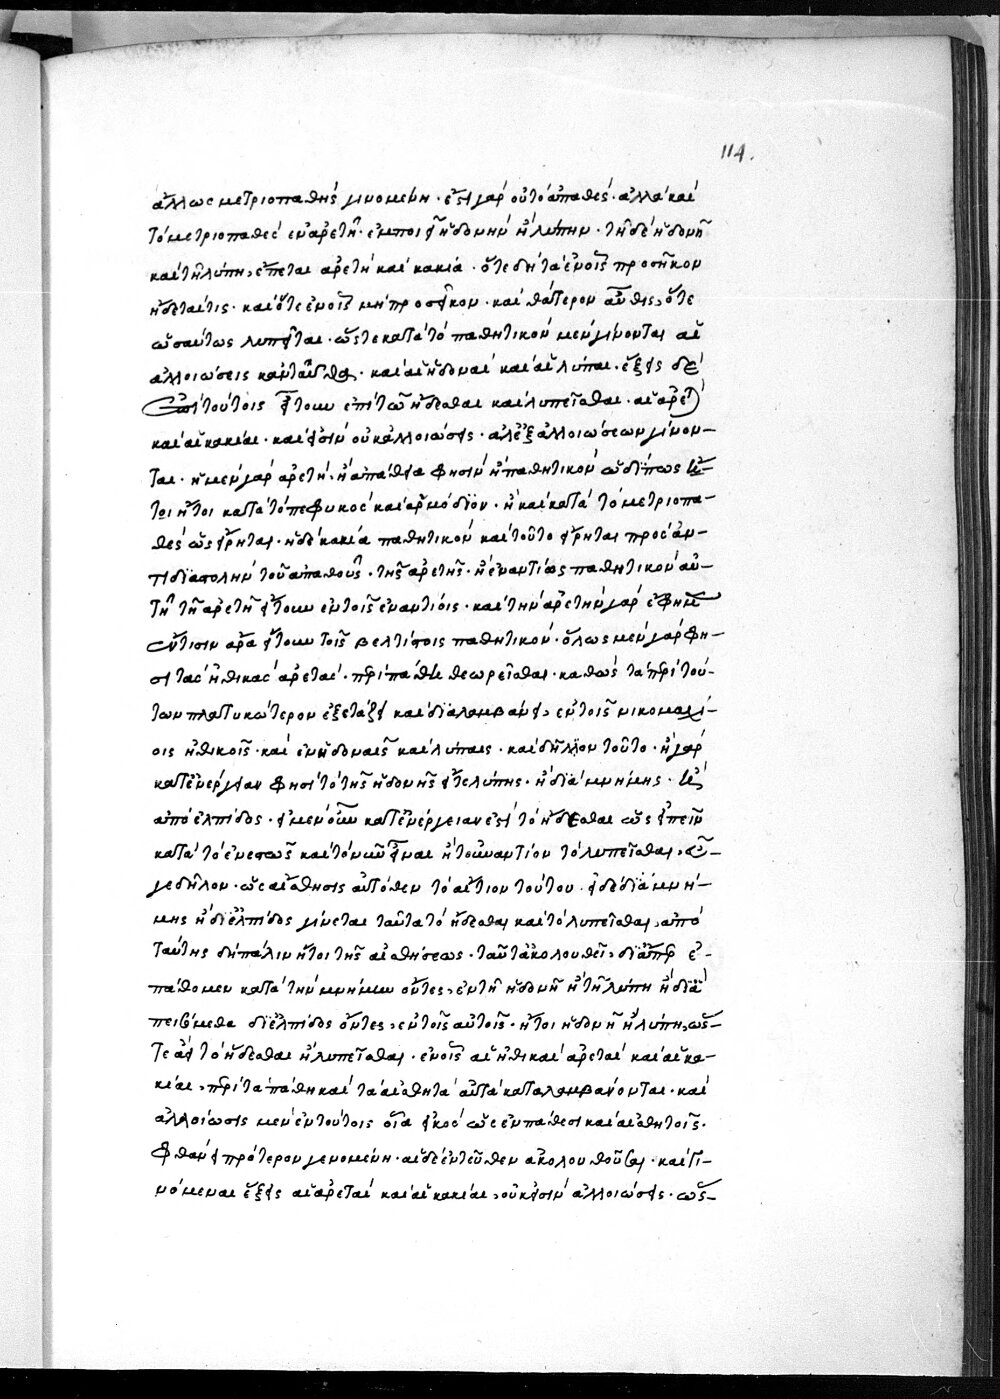 114.
ἄλλως μετριοπαθὴς γινομένη· ἔστι γὰρ οὐ τὸ ἀπαθὲς· ἀλλὰ καὶ
τὸ μετριοπαθὲς ἐν ἀρετῇ· ἐμποιεῖ ἡδονὴν ἢ λύπην· τῇ δὲ ἡδονῇ
καὶ τῇ λύπῃ, ἕπεται ἀρετὴ καὶ κακία· ὅτε δὴ τὰ ἐν οἷς προσῆκον
ἥδεταί τις· καὶ ὅτε ἐν οἷς μὴ προσῆκον· καὶ θάτερον αὖθις, ὅτε
ὡσαύτως λυπεῖται· ὥστε κατὰ τὸ παθητικὸν μὲν γίνονται αἱ
ἀλλοιώσεις κἀνταῦθα· καὶ αἱ ἡδοναὶ καὶ αἱ λύπαι· ἑξῆς δὲ
ἐπὶ τούτοις ἤτουν ἐπὶ τῷ ἥδεσθαι καὶ λυπεῖσθαι· αἱ ἀρεταὶ
καὶ αἱ κακίαι· καὶ εἰσὶν οὐκ ἀλλοιώσεις· ἀλλ' ἐξ ἀλλοιώσεων γίνον-
ται· ἡ μὲν γὰρ ἀρετὴ, ἢ ἀπάθεια φησὶν ἢ παθητικὸν ὡδίπως
τοι ἤτοι κατὰ τὸ πεφυκὸς καὶ ἁρμόδιον· ἢ καὶ κατὰ τὸ μετριοπα-
θὲς ὡς εἴρηται· ἡ δὲ κακία παθητικὸν καὶ τοῦτο εἴρηται πρὸς ἀν-
τιδιαστολὴν τοῦ ἀπαθοῦς· τῆς ἀρετῆς· ἢ ἐναντίως παθητικὸν αὐ-
τῇ τῇ ἀρετῇ ἤτουν ἐν τοῖς ἐναντίοις· καὶ τὴν ἀρετὴν γὰρ ἔφημεν
οὕτισιν ἄρα ἤτουν τοῖς βελτίστοις παθητικόν· ὅλως μὲν γὰρ φη-
σὶ τὰς ἠθικὰς ἀρετὰς· περὶ πάθη θεωρεῖσθαι· καθὼς τὰ περὶ τού-
των πλατυκώτερον ἐξετάζει καὶ διαλαμβάνει, ἐν τοῖς νικομαχεί-
οις ἠθικοῖς· καὶ ἐν ἡδοναῖς καὶ λύπαις· καὶ δῆλον τοῦτο· ἢ γὰρ
κατ' ἐνέργειαν φησὶ τὸ τῆς ἡδονῆς εἴτε λύπης· ἢ διὰ μνήμης· ἢ
ἀπὸ ἐλπίδος· εἰ μὲν οὖν κατ' ἐνέργειαν ἐστὶ τὸ ἥδεσθαι ὡς εἰπεῖν
κατὰ τὸ ἐνεστὼς καὶ τὸ νῦν εἶναι ἢ τοὐναντίον τὸ λυπεῖσθαι, εὖ-
γε δῆλον· ὡς αἴσθησις αὐτόθεν τὸ αἴτιον τούτου· εἰ δὲ διὰ μνή-
μης ἢ δι' ἐλπίδος γίνεται ταῦτα τὸ ἥδεσθαι καὶ τὸ λυπεῖσθαι, ἀπὸ
ταύτης δὴ πάλιν ἤτοι τῆς αἰσθήσεως· ταῦτ' ἀκολουθεῖ, δι' ἅπερ ἐ-
πάθομεν κατὰ τὴν μνήμην ὄντες, ἐν τῇ ἡδονῇ ἢ τῇ λύπῃ ἢ δι' ἃ
πεισόμεθα δι' ἐλπίδος ὄντες, ἐν τοῖς αὐτοῖς· ἤτοι ἡδονῇ ἢ λύπῃ, ὥσ-
τε ἀεὶ τὸ ἥδεσθαι ἢ λυπεῖσθαι· ἐν οἷς αἱ ἠθικαὶ ἀρεταὶ καὶ αἱ κα-
κίαι, περὶ τὰ πάθη καὶ τὰ αἰσθητὰ αὐτὰ καταλαμβάνονται· καὶ
ἀλλοίωσις μὲν ἐν τούτοις οἷα εἰκὸς ὡς ἐν πάθεσι καὶ αἰσθητοῖς·
φθάνει πρότερον γενομένη· αἱ δὲ ἐντεῦθεν ἀκολουθοῦσαι· καὶ γι-
νόμεναι ἑξῆς αἱ ἀρεταὶ καὶ αἱ κακίαι, οὐκ εἰσὶν ἀλλοιώσεις· ὡς-